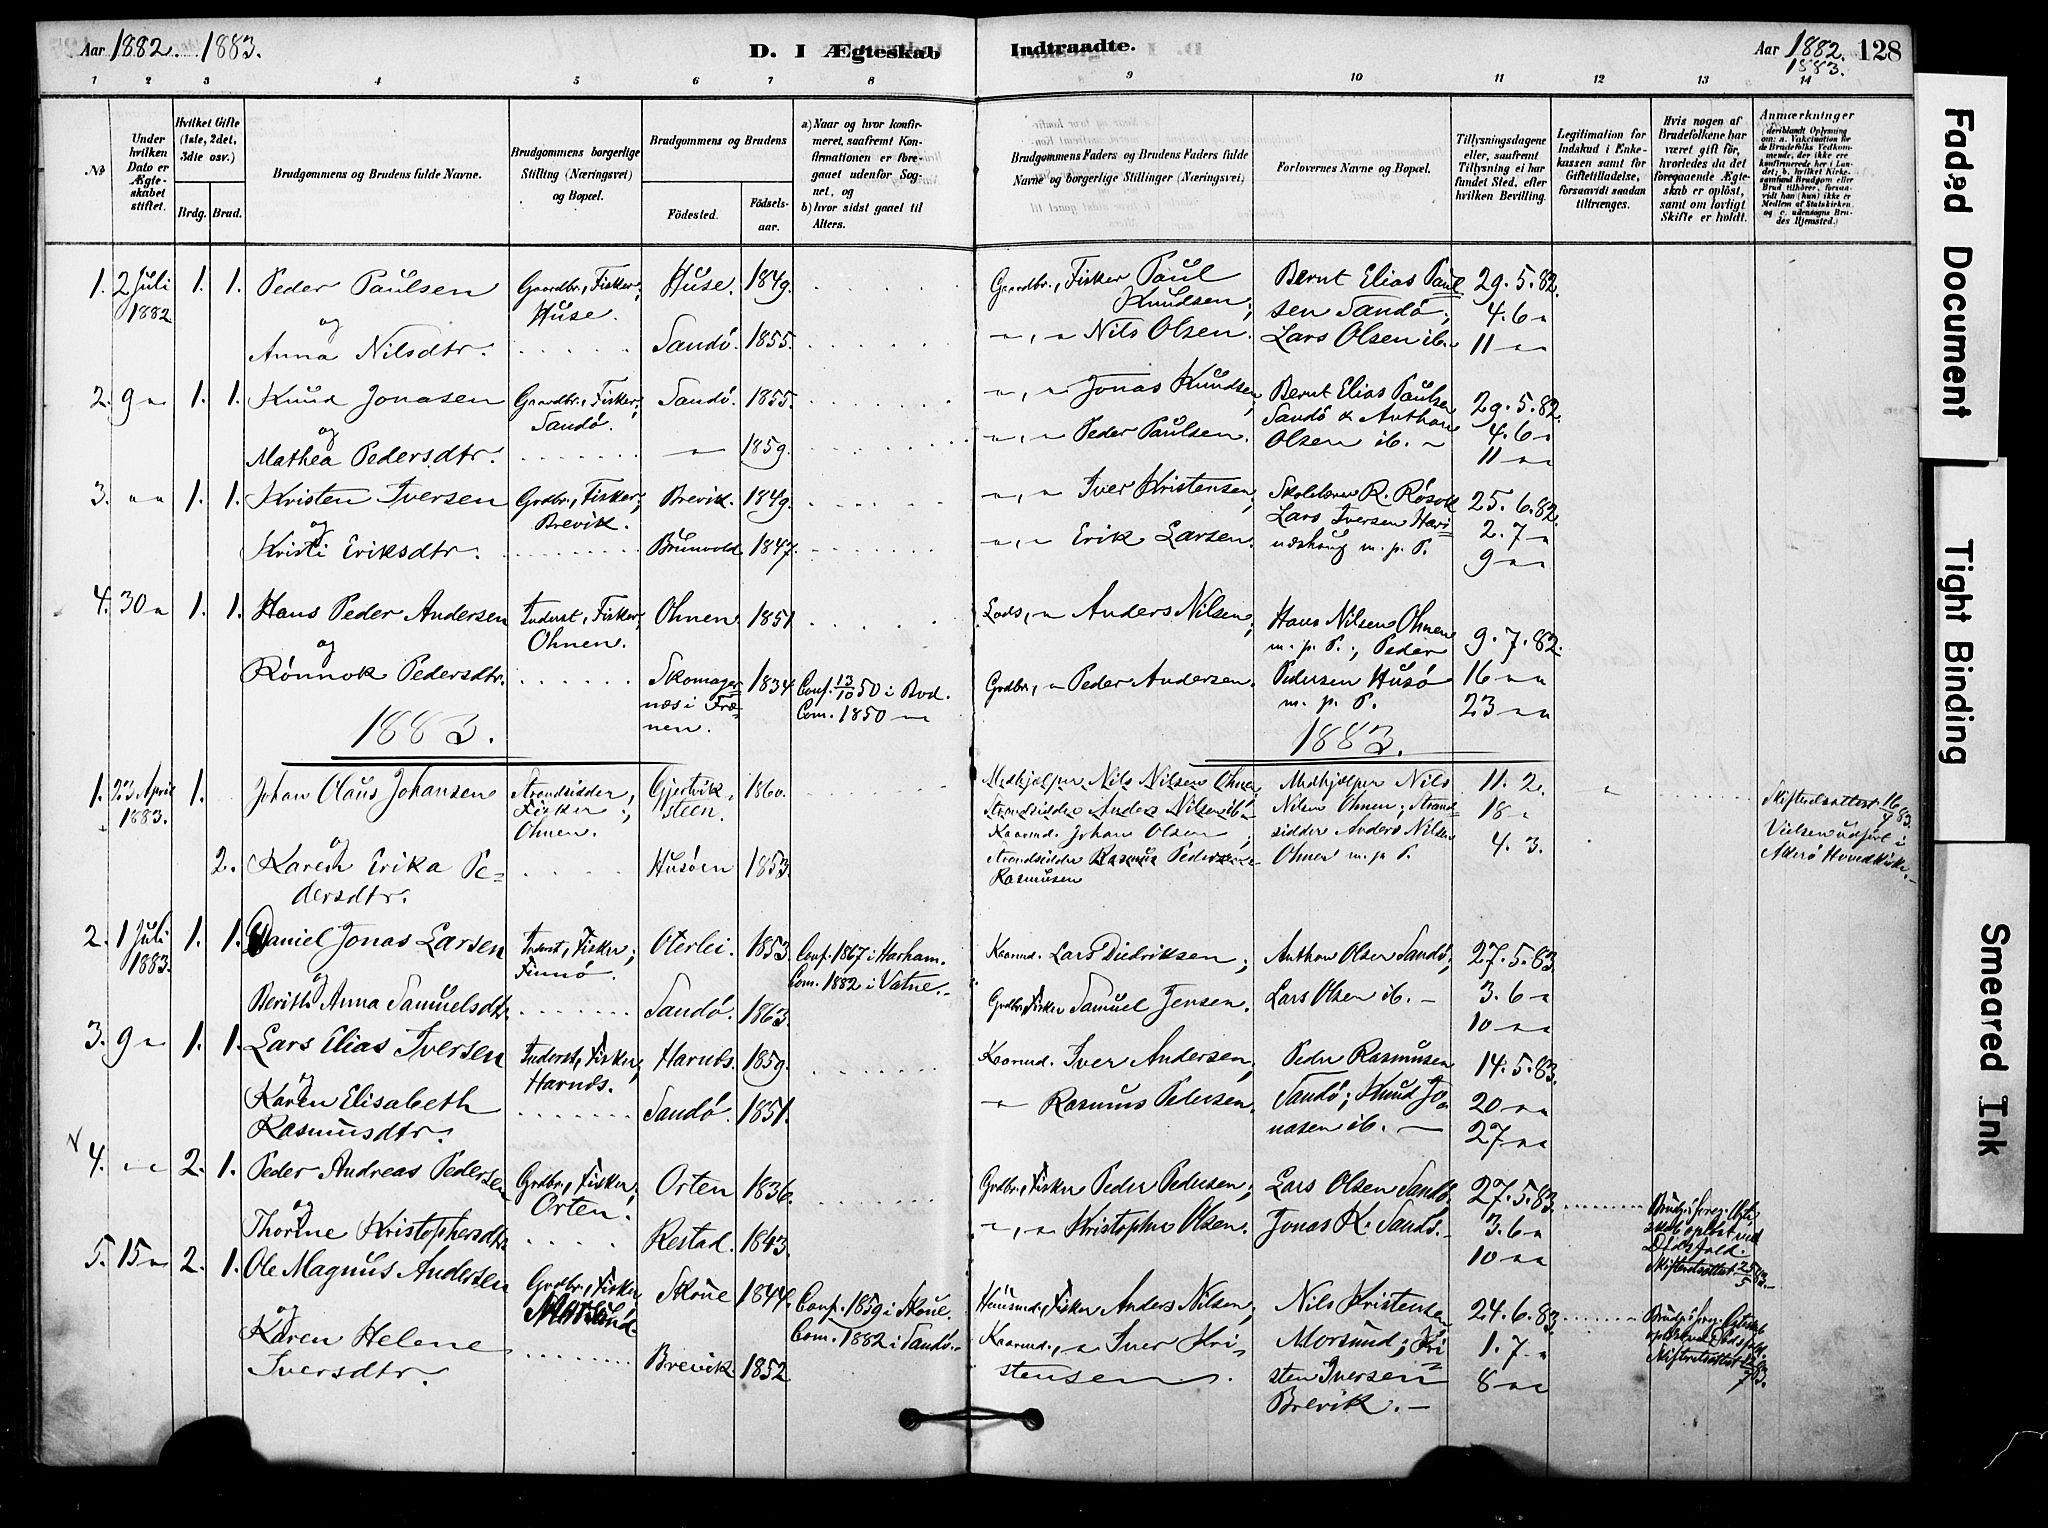 Aar 1882. 1883.
D. I Ægteskab
Indtraadte.
Aar 1882. 128
1883.
1 2 3 4 5 6 7 8 9 10 11 12 13 14
No
Under hvilken Dato er Ægteskabet stiftet.
Hvilket Gifte (1ste, 2det, 3die osv.)
Brdg. Brud.
Brudgommens og Brudens fulde Navne.
Brudgommens borgerlige Stilling (Næringsvei) og Bopæl.
Brudgommens og Brudens
Födested.
Födsels-aar.
a) Naar og hvor konfirmeret, saafremt Konfirmationen er foregaaet udenfor Sognet, og
b) hvor sidst gaaet til Alters.
Brudgommens Faders og Brudens Faders fulde Navne og borgerlige Stillinger (Næringsvei)
Forlovernes Navne og Bopæl.
Tillysningsdagene eller, saafremt Tillysning ei har fundet Sted, efter hvilken Bevilling.
Legitimation for Indskud i Enkekassen samt for Giftetilladelse, forsaavidt saadan tiltrænges.
Hvis nogen af Brudefolkene har været gift för, hvorledes da det foregaaende Ægteskab er oplöst, samt om lovligt Skifte er holdt.
Anmærkninger
1. 2 Juli 1882 1. 1. Peder Paulsen Gaardbr., Fisker, Huse. Huse. 1849. Gaardbr., Fisker Paul Knudsen; Bernt Elias Paulsen Sandö; 29.5.82.
og
Anna Nilsdtr. Sandö. 1855. Nils Olsen. Lars Olsen ib. 4.6 11
2. 9 1. 1. Knud Jonasen Gaardbr., Fisker, Sandö. Sandö. 1855. Jonas Knudsen; Bernt Elias Paulsen Sandö & Anthon Olsen ib. 29.5.82.
og
Mathea Pedersdtr. 1859. Peder Paulsen. 4.6 11
3. 1. 1. Kristen Iversen Grdbr., Fisker, Brevik. Brevik. 1849. Iver Kristensen; Skolelærer R. Rösok 25.6.82.
og
Kristi Eriksdtr. Brunvold 1847. Erik Larsen. Lars Iversen m. p. P. 2.7 9
4. 30 1. 1. Hans Peder Andersen Inderst, Fisker, Ohnen. Ohnen. 1851 Lods, Anders Nilsen; Hans Nilsen Ohnen m. p. P.; Peder 9.7.82.
og
Rönnok Pedersdtr. Skomagernæs i Frænen. 1834. Conf. 13/10 50 i Bod. Com. 1850 Grdbr., Peder Andersen. Pedersen Husö m. p. P. 16 23
1883. 1883.
1. 23 April 1883. 1. Johan Olaus Johansen Strandsidder, Fisker; Ohnen. Gjertviksteen. 1860. Medhjælper Nils Nilsen Ohnen; Strandsidder Anders Nilsen ib. Medhjælper Nils Nilsen Ohnen; Strandsidder Anders Nilsen Ohnen m. p. P. 11.2. 18 4.3.
og Kaarmd. Johan Olsen;
2. Karen Erika Pedersdtr. Husöen 1853. Strandsidder Rasmus Pedersen Rasmusen
Skifteretsattest 16/4 83. Vielsen udfört i Akerö Hovedkirke.
2. 1 Juli 1883. 1. 1. Daniel Jonas Larsen Inderst, Fisker; Finnö. Oterlei. 1853. Conf. 1867 i Harham. Com. 1882 i Vatne. Kaarmd. Lars Diedriksen; Anthon Olsen Sandö; 27.5.83.
og
Berith Anna Samuelsdtr. Sandö. 1863. Grdbr., Fisker Samuel Jensen. Lars Olsen ib. 3.6 10
3. 9 1. 1. Lars Elias Iversen Inderst, Fisker, Harnæs. Harnæs. 1859. Kaarmd. Iver Andersen; Peder Rasmusen Sandö; Knud Jonasen ib. 14.5.83.
og
Karen Elisabeth Rasmusdtr. Sandö. 1851. Rasmus Pedersen. 20 27
4. 2. 1. Peder Andreas Pedersen Grdbr., Fisker; Orten. Orten 1836. Grdbr., Fisker Peder Pedersen; Lars Olsen Sandö 27.5.83.
og
Thorine Kristophersdtr. Restad. 1843. Kristopher Olsen. Jonas K. Sandö. 3.6 10
Brudg.s foreg. Ægteskab oplöst ved Dödsfald. Skifteretsattest 25/5 83.
5. 15 2. 1. Ole Magnus Andersen Grdbr., Fisker Morsund. Skoue 1844. Conf. 1859 i Skoue. Com. 1882 i Sandö. Huusmd., Fisker Anders Nilsen; Nils Kristensen Morsund; Kristen Iversen Brevik. 24.6.83.
og
Karen Helene Iversdtr. Brevik 1852 Kaarmd., Iver Kristensen. 1.7 8
Brudg.s foreg. Ægteskab oplöst ved Dödsfald.
Faded Document
Tight Binding
Smeared Ink